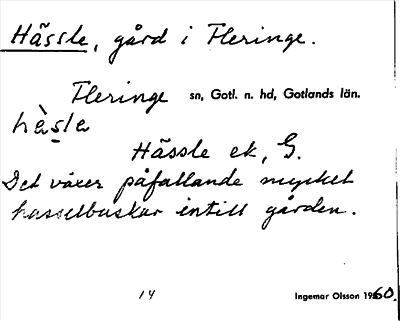 Hässle, gård i Fleringe.
Fleringe sn, Gotl. n. hd, Gotlands län.
hàsla
Hässle ek, G.
Det växer påfallande mycket
hasselbuskar intill gården.
14 Ingemar Olsson 1960.